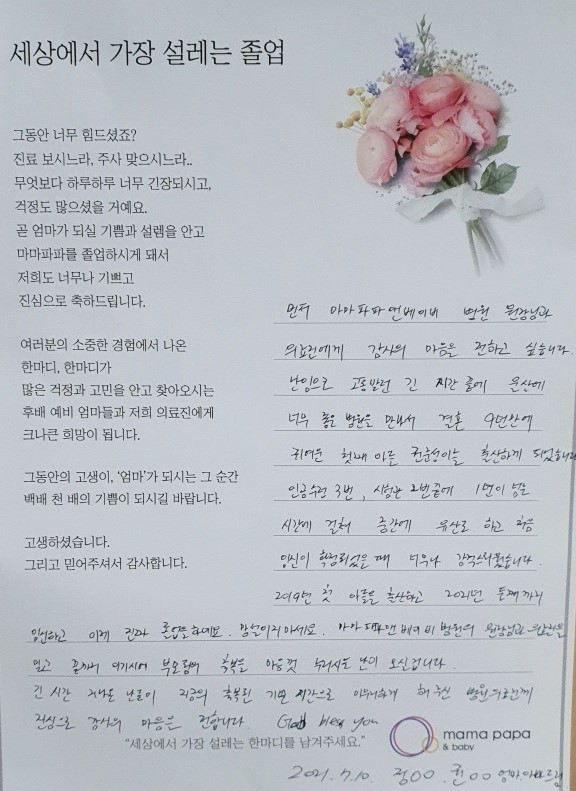 세상에서 가장 설레는 졸업
그동안 너무 힘드셨죠?
진료 보시느라, 주사 맞으시느라..
무엇보다 하루하루 너무 긴장되시고,
걱정도 많으셨을 거예요.
곧 엄마가 되실 기쁨과 설렘을 안고
마마파파를 졸업하시게 돼서
저희도 너무나 기쁘고
진심으로 축하드립니다.
여러분의 소중한 경험에서 나온
한마디, 한마디가
많은 걱정과 고민을 안고 찾아오시는
후배 예비 엄마들과 저희 의료진에게
크나큰 희망이 됩니다.
그동안의 고생이, '엄마'가 되시는 그 순간
백배 천 배의 기쁨이 되시길 바랍니다.
고생하셨습니다.
그리고 믿어주셔서 감사합니다.
먼저 마마파파앤베이비 병원 원장님과
의료진에게 감사의 마음을 전하고 싶습니다.
난임으로 고통받던 긴 시간 끝에
너무 좋은 병원을 만나서 결혼 9년만에
귀여운 첫째 아들 출산하게 되었습니다
인공수정 3번, 시험관 2번끝에 1년이 넘는
시간에 걸쳐 중간에 유산도 하고 처음
임신이 확정되었을 때 너무나 감격스러웠습니다.
2019년 첫 아들을 출산하고 2021년 둘째까지
임신하고 이제 진짜 졸업을 하네요. 망설이지마세요. 마마파파앤베이비병원의 원장님과
믿고 끝까지 이기시어 부모됨의 축복을 마음껏 누리시는 날이 오실겁니다.
긴 시간 지나온 날들이 지금의 축복된 기쁜 시간으로 해 주신 병원
진심으로 감사의 마음을 전합니다 God bless you
"세상에서 가장 설레는 한마디를 남겨주세요."
mama papa
& baby
2021.7.10. 정OO. OO 엄마.아빠드림